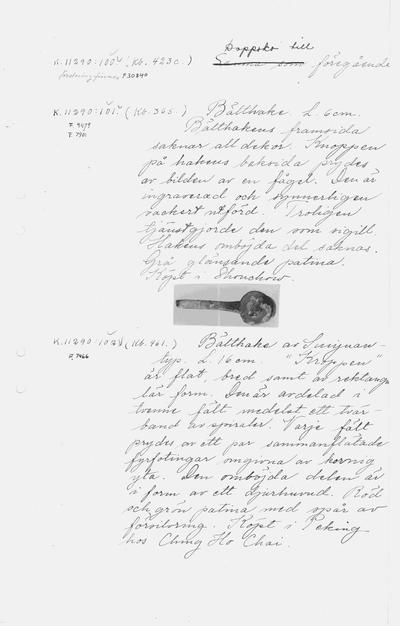 Doppsko till
K.11290:100 (Kb. 423c.) Samma som föregående
fordringfinnes P30840
K.11290:101. (Kb. 365.) Bälthake. L. 6cm.
F. 9479
F. 7901
Bälthakens framsida
saknar all dekor. Knoppen
på hakens baksida prydes
av bilden av en fågel. Den är
ingraverad och synnerligen
vackert utförd. Troligen
tjänstgjorde den som sigill.
Hakens omböjda del saknas.
Grå glänsande patina.
Köpt i Shouchow.
K.11290:102 (Kb. 461.) Bälthake av Suiyuan-
F. 7466
typ. L. 16cm. "Kroppen"
är flat, bred samt av rektangu
lär form. Den är avdelad i
tvenne fält medelst ett tvär-
band av spiraler. Varje fält
prydes av ett par sammanflätade
fyrfotingar omgivna av kornig
yta. Den omböjda delen är
i form av ett djurhuvud. Röd
och grön patina med spår av
försilvring. Köpt i Peking
hos Ching Ho Chai.